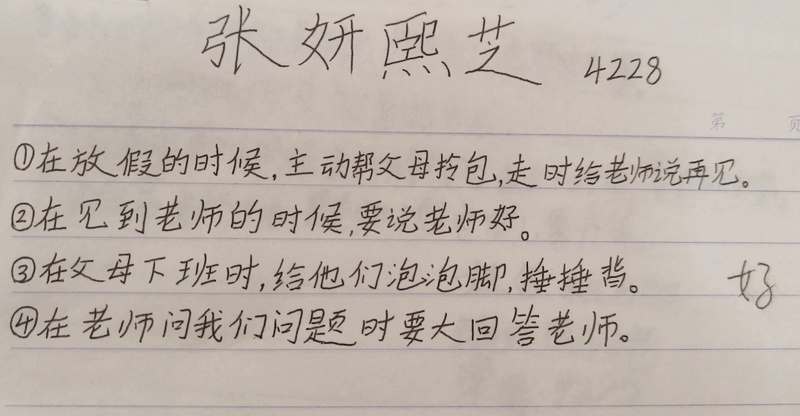 张妍熙芝 4228
第 页
①在放假的时候,主动帮父母拎包,走时给老师说再见。
②在见到老师的时候,要说老师好。
③在父母下班时,给他们泡泡脚,捶捶背。
好
④在老师问我们问题时要大回答老师。